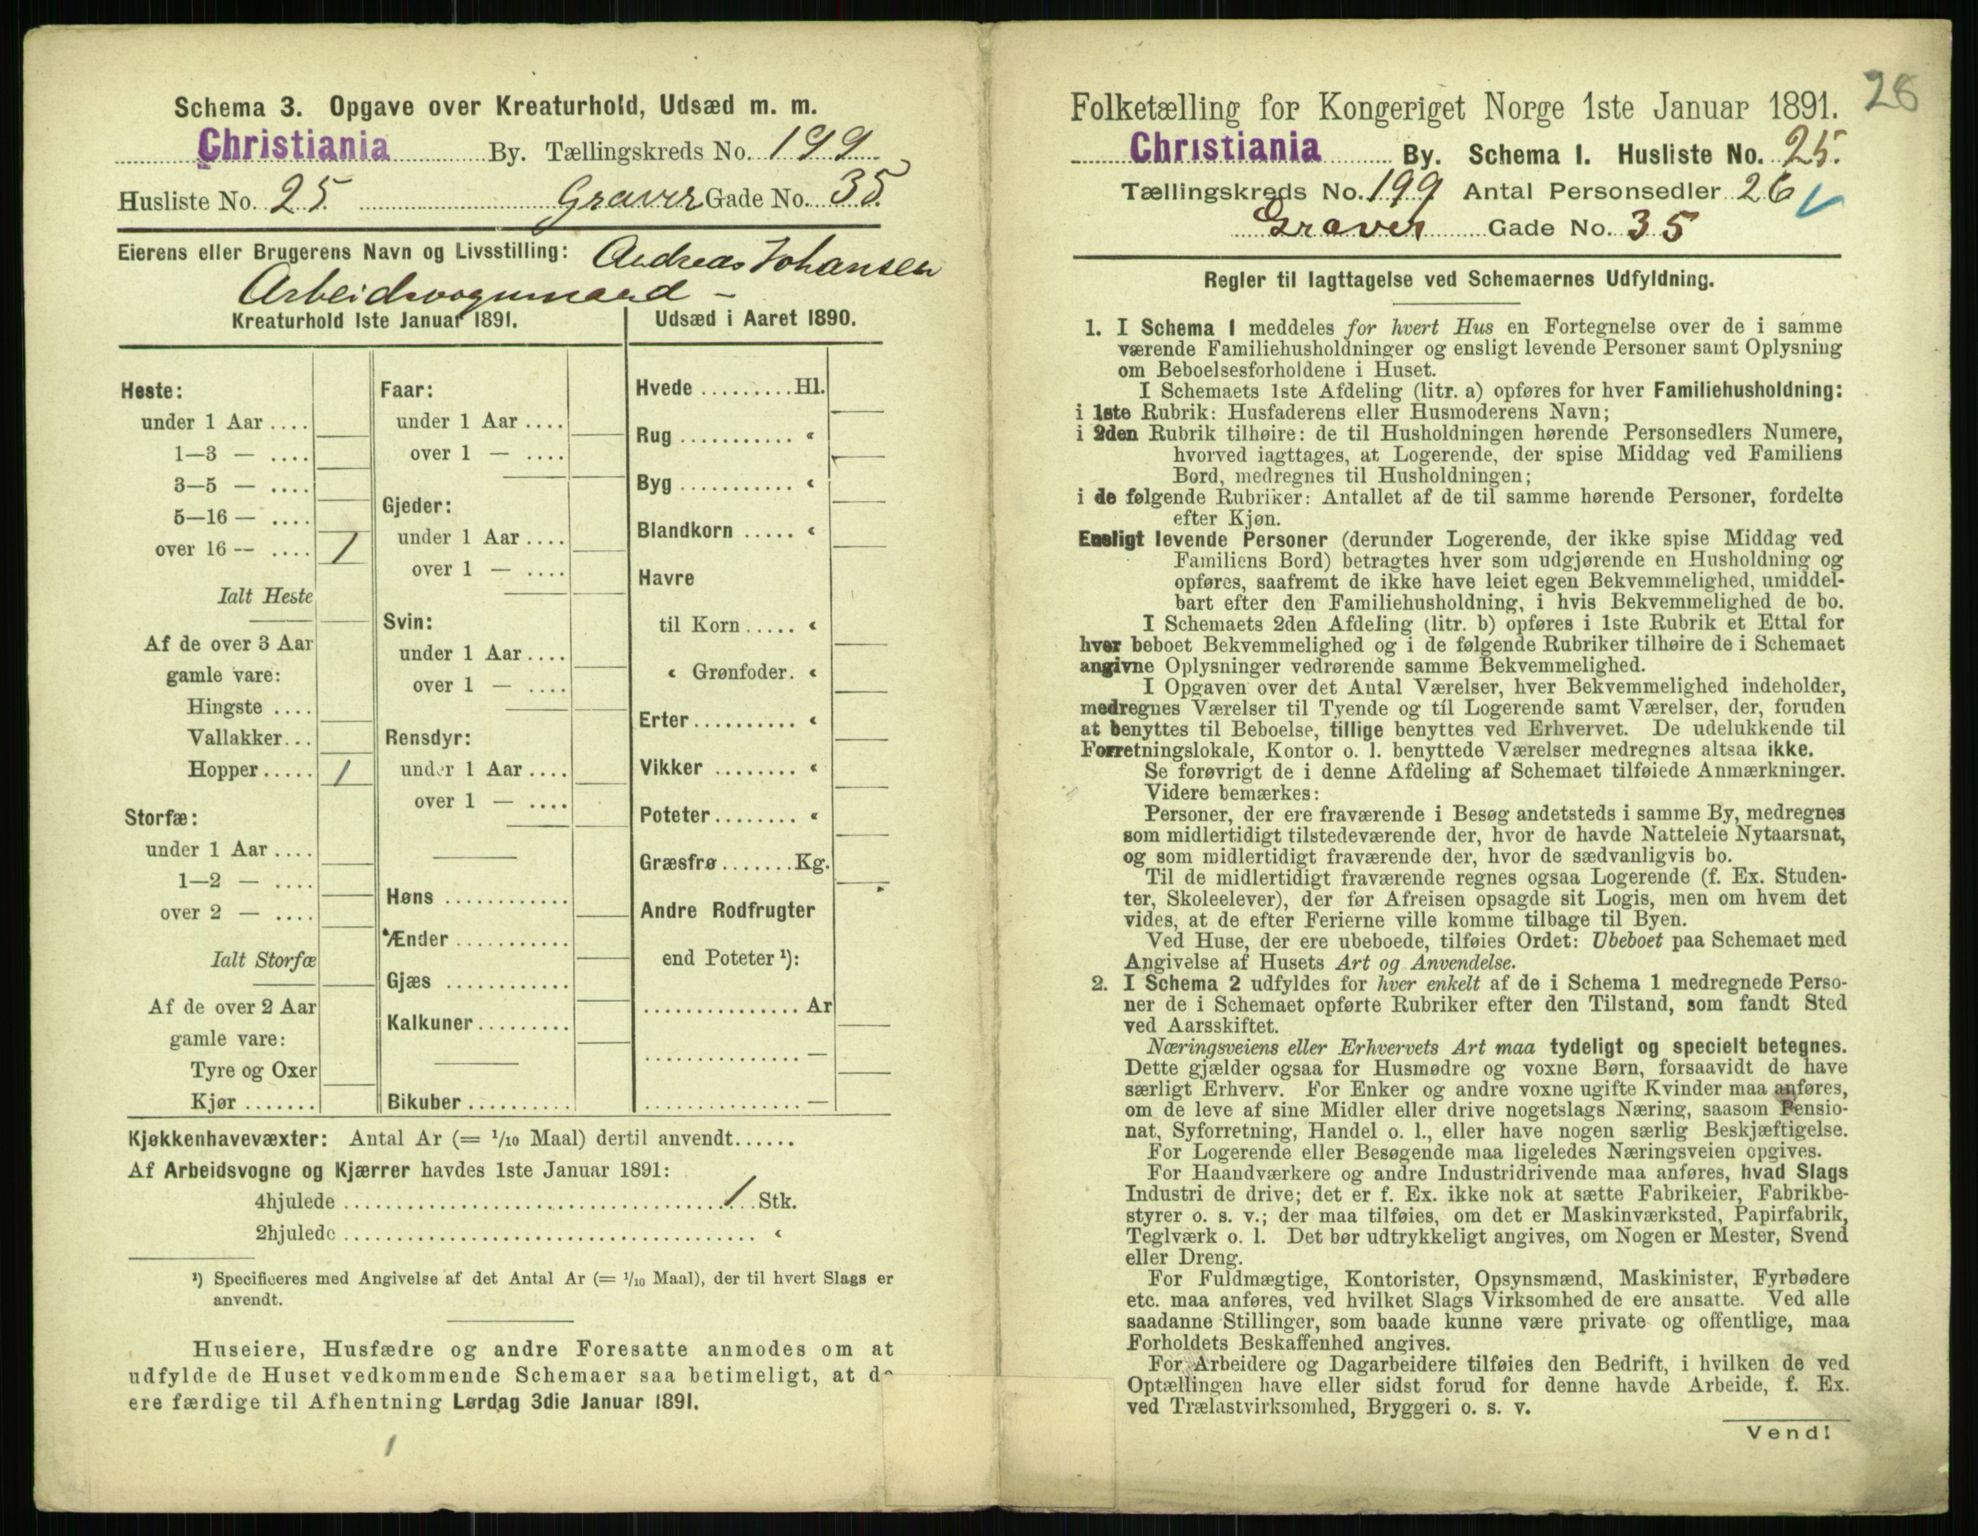 Schema 3. Opgave over Kreaturhold, Udsæd m. m.
Christiania By. Tællingskreds No. 199
Husliste No. 25. Graver Gade No. 35.
Eierens eller Brugerens Navn og Livsstilling: Andreas Johansen
Arbeidsvognmand –
Kreaturhold 1ste Januar 1891.
Heste:
under 1 Aar ....
1—3 — ....
3—5 — ....
5—16 — ....
over 16 — .... 1
Ialt Heste
Af de over 3 Aar
gamle vare:
Hingste ....
Vallakker...
Hopper..... 1
Storfæ:
under 1 Aar ....
1—2 — ....
over 2 — ....
Ialt Storfæ
Af de over 2 Aar
gamle vare:
Tyre og Oxer
Kjør .......
Faar:
under 1 Aar ....
over 1 — ....
Gjeder:
under 1 Aar ....
over 1 — ....
Svin:
under 1 Aar ....
over 1 — ....
Rensdyr:
under 1 Aar ....
over 1 — ....
Høns ............
Ænder ...........
Gjæs ............
Kalkuner.........
Bikuber ..........
Udsæd i Aaret 1890.
Hvede .........Hl.
Rug ........... «
Byg ........... «
Blandkorn ..... «
Havre
til Korn ..... «
« Grønfoder. «
Erter.......... «
Vikker ........ «
Poteter........ «
Græsfrø .......Kg.
Andre Rodfrugter
end Poteter ¹):
............... Ar
............... —
............... —
Kjøkkenhavevæxter: Antal Ar (= 1/10 Maal) dertil anvendt......
Af Arbeidsvogne og Kjærrer havdes 1ste Januar 1891:
4hjulede .................... 1 Stk.
2hjulede .................... «
¹) Specificeres med Angivelse af det Antal Ar (= 1/10 Maal), der til hvert Slags er
anvendt.
Huseiere, Husfædre og andre Foresatte anmodes om at
udfylde de Huset vedkommende Schemaer saa betimeligt, at de
ere færdige til Afhentning Lørdag 3die Januar 1891.
28
Folketælling for Kongeriget Norge 1ste Januar 1891.
Christiania By. Schema I. Husliste No. 25.
Tællingskreds No. 199 Antal Personsedler 26
Graver Gade No. 35
Regler til Iagttagelse ved Schemaernes Udfyldning.
1. I Schema 1 meddeles for hvert Hus en Fortegnelse over de i samme
værende Familiehusholdninger og ensligt levende Personer samt Oplysning
om Beboelsesforholdene i Huset.
I Schemaets 1ste Afdeling (litr. a) opføres for hver Familiehusholdning:
i 1ste Rubrik: Husfaderens eller Husmoderens Navn;
i 2den Rubrik tilhøire: de til Husholdningen hørende Personsedlers Numere,
hvorved iagttages, at Logerende, der spise Middag ved Familiens
Bord, medregnes til Husholdningen;
i de følgende Rubriker: Antallet af de til samme hørende Personer, fordelte
efter Kjøn.
Ensligt levende Personer (derunder Logerende, der ikke spise Middag ved
Familiens Bord) betragtes hver som udgjørende en Husholdning og
opføres, saafremt de ikke have leiet egen Bekvemmelighed, umiddel-
bart efter den Familiehusholdning, i hvis Bekvemmelighed de bo.
I Schemaets 2den Afdeling (litr. b) opføres i 1ste Rubrik et Ettal for
hver beboet Bekvemmelighed og i de følgende Rubriker tilhøire de i Schemaet
angivne Oplysninger vedrørende samme Bekvemmelighed.
I Opgaven over det Antal Værelser, hver Bekvemmelighed indeholder,
medregnes Værelser til Tyende og til Logerende samt Værelser, der, foruden
at benyttes til Beboelse, tillige benyttes ved Erhvervet. De udelukkende til
Forretningslokale, Kontor o. l. benyttede Værelser medregnes altsaa ikke.
Se forøvrigt de i denne Afdeling af Schemaet tilføiede Anmærkninger.
Videre bemærkes:
Personer, der ere fraværende i Besøg andetsteds i samme By, medregnes
som midlertidigt tilstedeværende der, hvor de havde Natteleie Nytaarsnat,
og som midlertidigt fraværende der, hvor de sædvanligvis bo.
Til de midlertidigt fraværende regnes ogsaa Logerende (f. Ex. Studen-
ter, Skoleelever), der før Afreisen opsagde sit Logis, men om hvem det
vides, at de efter Ferierne ville komme tilbage til Byen.
Ved Huse, der ere ubeboede, tilføies Ordet: Ubeboet paa Schemaet med
Angivelse af Husets Art og Anvendelse.
2. I Schema 2 udfyldes for hver enkelt af de i Schema 1 medregnede Perso-
ner de i Schemaet opførte Rubriker efter den Tilstand, som fandt Sted
ved Aarsskiftet.
Næringsveiens eller Erhvervets Art maa tydeligt og specielt betegnes.
Dette gjælder ogsaa for Husmødre og voxne Børn, forsaavidt de have
særligt Erhverv. For Enker og andre voxne ugifte Kvinder maa anføres,
om de leve af sine Midler eller drive nogetslags Næring, saasom Pensio-
nat, Syforretning, Handel o. l., eller have nogen særlig Beskjæftigelse.
For Logerende eller Besøgende maa ligeledes Næringsveien opgives.
For Haandværkere og andre Industridrivende maa anføres, hvad Slags
Industri de drive; det er f. Ex. ikke nok at sætte Fabrikeier, Fabrikbe-
styrer o. s. v.; der maa tilføies, om det er Maskinværksted, Papirfabrik,
Teglværk o. l. Det bør udtrykkeligt angives, om Nogen er Mester, Svend
eller Dreng.
For Fuldmægtige, Kontorister, Opsynsmænd, Maskinister, Fyrbødere
etc. maa anføres, ved hvilket Slags Virksomhed de ere ansatte. Ved alle
saadanne Stillinger, som baade kunne være private og offentlige, maa
Forholdets Beskaffenhed angives.
For Arbeidere og Dagarbeidere tilføies den Bedrift, i hvilken de ved
Optællingen have eller sidst forud for denne havde Arbeide, f. Ex.
ved Trælastvirksomhed, Bryggeri o. s. v.
Vend!